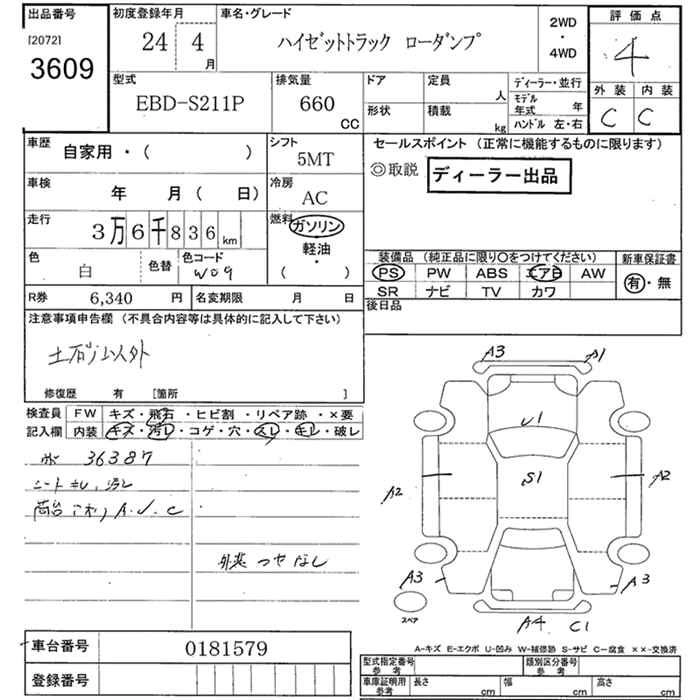 出品番号
[2072]
3609
初度登録年月
24 4
月
車名・グレード
ハイゼットトラック ローダンプ
2WD
・
4WD
評価点
4
外装 内装
C C
型式
EBD-S211P
排気量
660
CC
ドア
形状
定員
人
積載
kg
ディーラー・並行
モデル
年式 年
ハンドル 左・右
車歴
自家用・( )
シフト
5MT
車検
年 月( 日)
冷房
AC
走行
3万6千836km
燃料
ガソリン
軽油・
( )
色
白
色替
色コード
W09
R券 6,340 円
名変期限 月 日
セールスポイント (正常に機能するものに限ります)
◎取説 ディーラー出品
装備品 (純正品に限り○をつけてください)
PS PW ABS エアB AW
SR ナビ TV カワ
新車保証書
有・無
後日品
注意事項申告欄 (不具合内容等は具体的に記入して下さい)
土砂以外
修復歴 有 [箇所 ]
検査員
記入欄
FW キズ・飛石・ヒビ割・リペア跡・×要
内装 キズ・汚レ・コゲ・穴・スレ・キレ・破レ
36387
シート
荷台 A.U.C
外装 ツヤなし
車台番号 0181579
登録番号
A3 A1
U1
S1
A2 A2
A3 A3
スペア
A4 C1
A-キズ E-エクボ U-凹み W-補修跡 S-サビ C-腐食 ××-交換済
型式指定番号
参考
類別区分番号
車庫証明用
参考
長さ cm 幅 cm 高さ cm